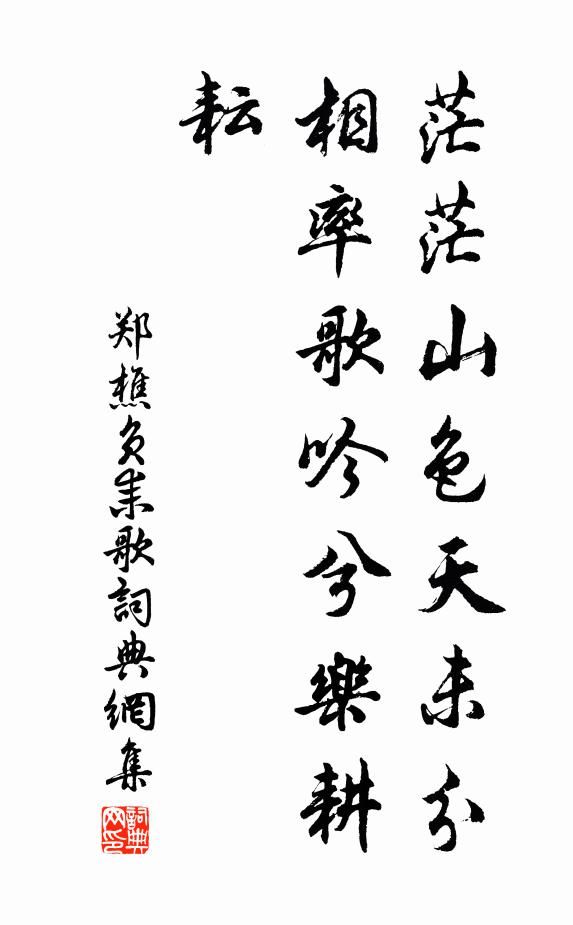 茫茫山色天未分
相率歌吟兮樂耕
耘
郑樵负耒歌詞典網集
詞典
网印